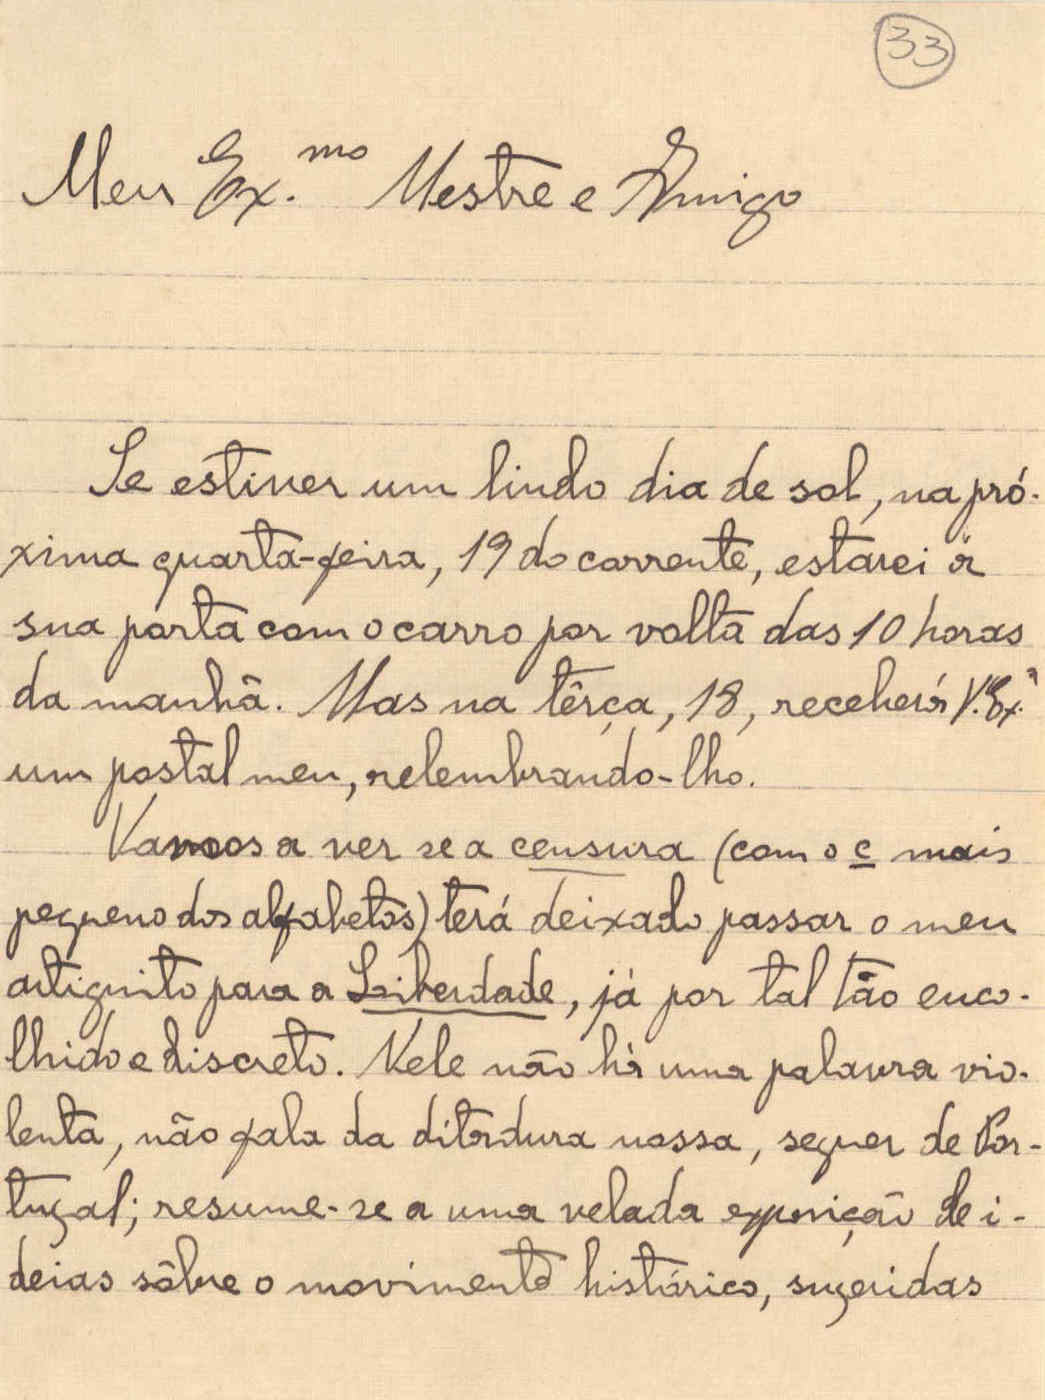 33
Meu Ex.mo Mestre e Amigo
Se estiver um lindo dia de sol, na pró-
xima quarta-feira, 19 do corrente, estarei à
sua porta com o carro por volta das 10 horas
da manhã. Mas na têrça, 18, receberá V. Ex.ª
um postal meu, relembrando-lho.
Vamos a ver se a censura (com o c mais
pequeno dos alfabetos) terá deixado passar o meu
artiguito para a Liberdade, já por tal tão enco-
lhido e discreto. Nele não há uma palavra vio-
lenta, não fala da ditadura nossa, sequer de Por-
tugal; resume-se a uma velada exposição de i-
deias sôbre o movimento histórico, sugeridas